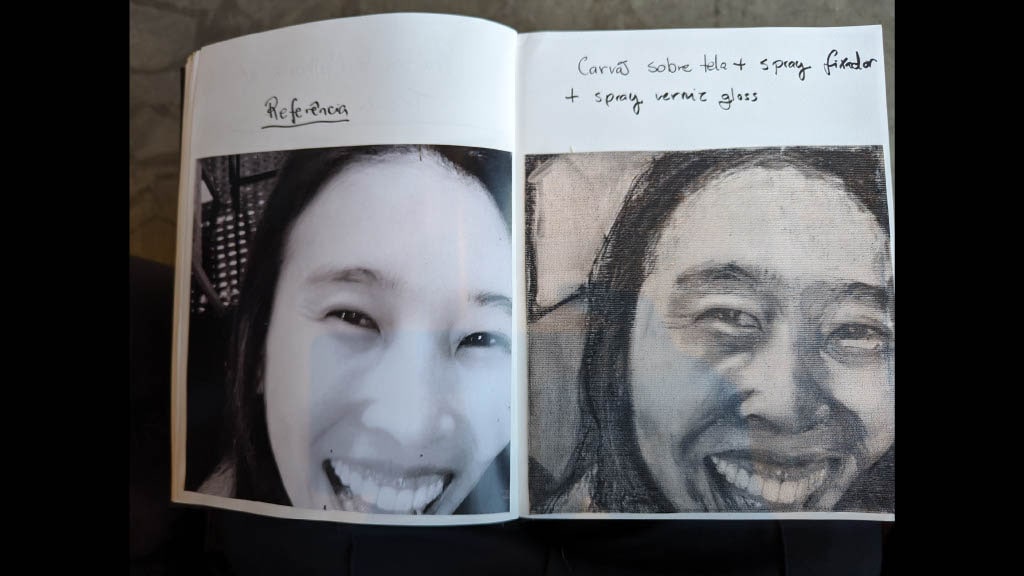 Referência
Carvão sobre tela + spray fixador
+ spray verniz gloss